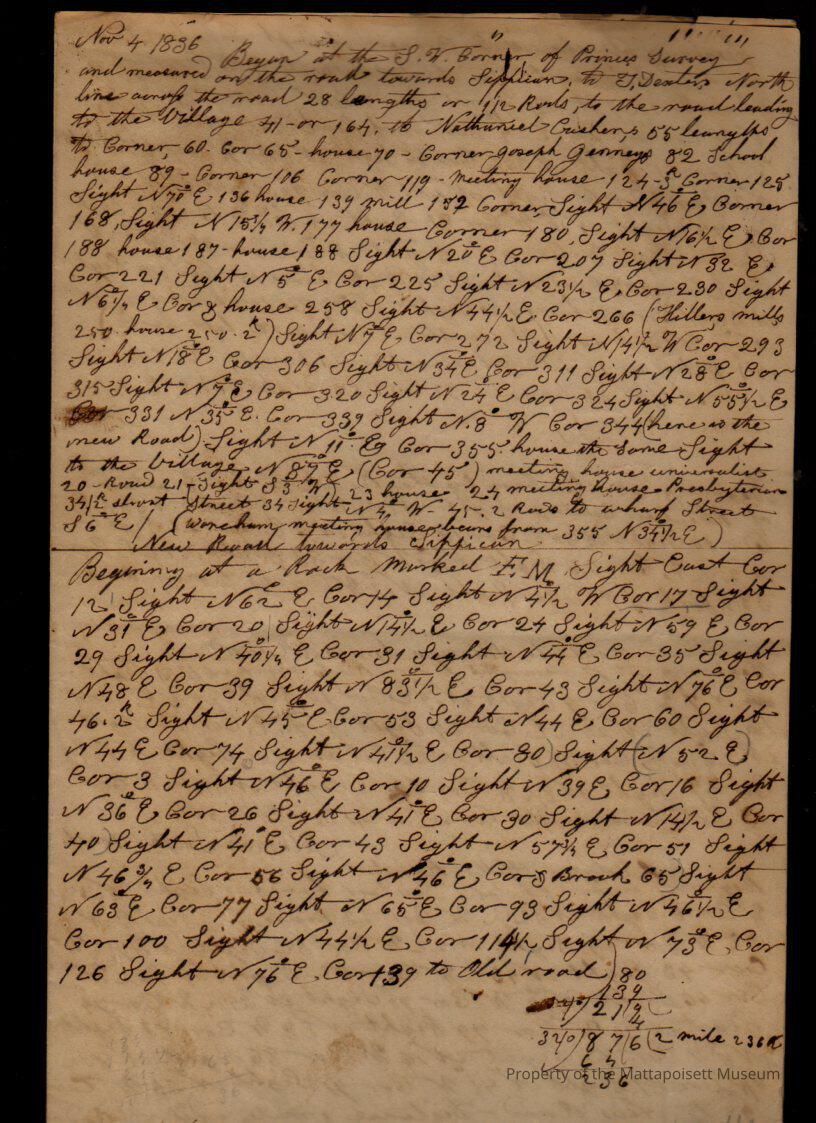 Nov 4 1836
Began at the S. W. Corner of Princes Survey
and measured on the road towards Sippican, to Dexters North
line across the road 28 lengths or 112 Rods, to the road leading
to the Village 41 - or 164, to Nathaniel Cushens 55 lengths
to Corner, 60. Cor 65 - house 70 - Corner Joseph Genneys 82 School
house 89 - Corner 106 Corner 119 - Meeting house 124 - 3 R Corner 125
Sight N 70° E 136 house 139 mill 152 Corner, Sight N 46° E Corner
168, Sight N 15 3/4 W. 177 house Corner 180, Sight N 16 1/2 E, Cor
188 house 187 - house 188 Sight N 20° E Cor 207 Sight N 32 E,
Cor 221 Sight N 5° E Cor 225 Sight N 23 1/2 E Cor 230 Sight
E Cor & house 258 Sight N 44 1/2 E Cor 266 (Hillers mills
250 house 250. 2 R) Sight N 7° E Cor 272 Sight N 14 1/2 W Cor 293
Sight N 18° E Cor 306 Sight N 34° E Cor 311 Sight N 28° E Cor
315 Sight N 7° E Cor 320 Sight N 24° E Cor 324 Sight N 55 1/2 E
331 N 35° E. Cor 339 Sight N. 8° W Cor 344 (here is the
new Road) Sight N 11° E Cor 355. house the Same Sight
to the Village, N 89° E (Cor 45) meeting house universalist
20 - Road 21 - Sight S 3° W 23 house 24 meeting House Presbyterian
34 1/2 Street 34 Sight N 4° W - 45. 2 Rods to wharf Street
S 6° E / (Wareham meeting house bears from 355 N 34 1/2 E)
New Road towards Sippican
Begining at a Rock Marked F. M. Sight East Cor
12 Sight N 62° E Cor 14 Sight N 4 1/2 W Cor 17 Sight
N 31° E Cor 20 Sight N 14 1/2 E Cor 24 Sight N 59 E Cor
29 Sight N 40 1/4 E Cor 31 Sight N 44° E Cor 35 Sight
N 48 E Cor 39 Sight N 83 1/2 E Cor 43 Sight N 76° E Cor
46. 2 R Sight N 45° E Cor 53 Sight N 44 E Cor 60 Sight
N 44 E Cor 74 Sight N 41 1/2 E Cor 80) Sight (N 52 E)
Cor 3 Sight N 46° E Cor 10 Sight N 39 E Cor 16 Sight
N 36° E Cor 26 Sight N 41° E Cor 30 Sight N 14 1/2 E Cor
40) Sight N 41° E Cor 43 Sight N 57 3/4 E Cor 51 Sight
N 46 3/4 E Cor 56 Sight N 46° E Cor & Brook 65 Sight
N 63° E Cor 77 Sight N 65° E Cor 93 Sight N 46 1/2 E
Cor 100 Sight N 44 1/2 E Cor 114 1/2 Sight N 73° E, Cor
126 Sight N 76° E Cor 139 to Old road) 80
139
219
4
320)876(2 mile 236 R
236
Property of the Mattapoisett Museum